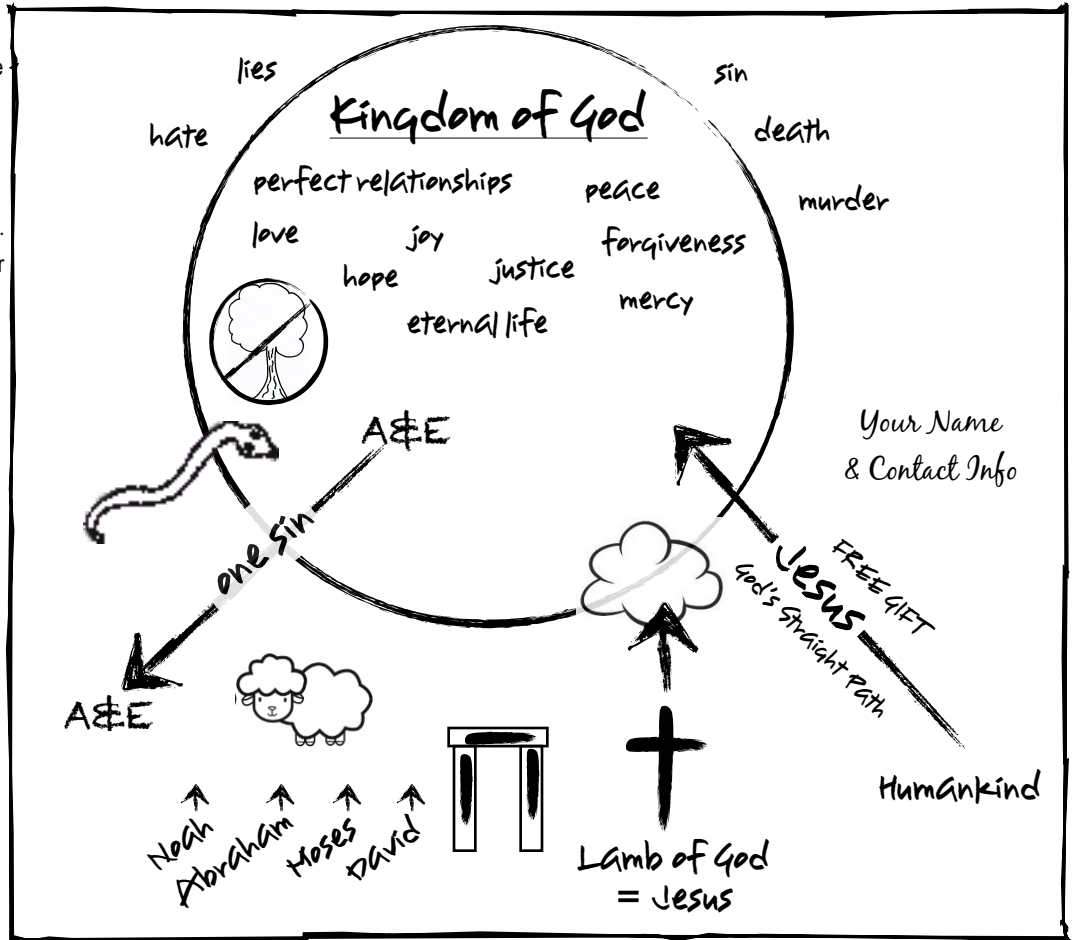 lies
sin
hate
Kingdom of God
death
perfect relationships
peace
murder
love
joy
forgiveness
hope
justice
mercy
eternal life
A&E
Your Name
& Contact Info
one sin
Jesus
FREE GIFT
God's Straight Path
A&E
Humankind
Noah
Abraham
Moses
David
Lamb of God
= Jesus